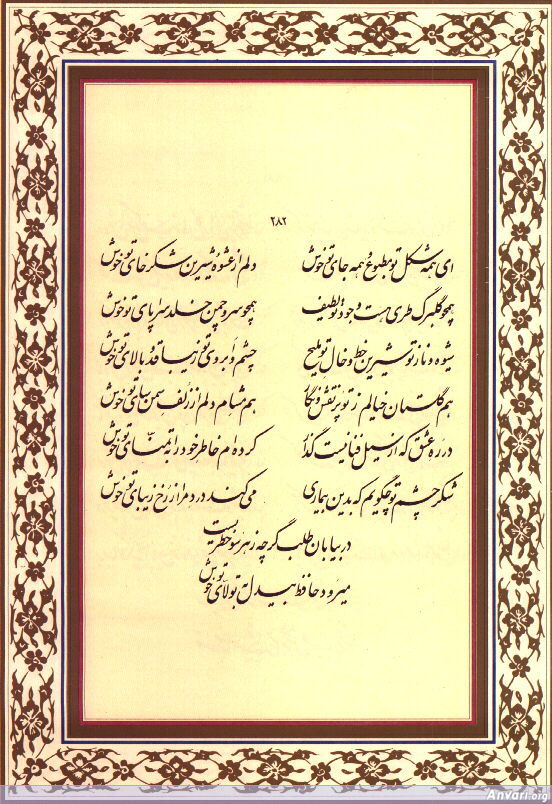 ۲۸۲
ای همه شکل تو مطبوع و همه جای تو خوش دلم از عشوه شیرین شکرخای تو خوش
همچو گلبرگ طری هست وجود تو لطیف همچو سرو چمن خلد سراپای تو خوش
شیوه و ناز تو شیرین خط و خال تو ملیح چشم و ابروی تو زیبا قد و بالای تو خوش
هم گلستان خیالم ز تو پر نقش و نگار هم مشام دلم از زلف سمن سای تو خوش
در ره عشق که از سیل فنا نیست گذار کرده‌ام خاطر خود را به تمنای تو خوش
شکر چشم تو چگویم که بدین بیماری می‌کند درد مرا از رخ زیبای تو خوش
در بیابان طلب گرچه ز هر سو خطریست
میرود حافظ بیدل به تولای تو خوش
Anvari.org